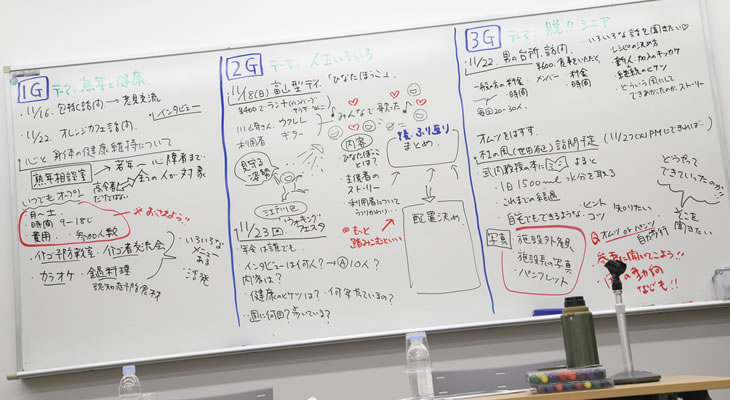 1G テーマ:熟年と健康
・11/16. 包括訪問 → 意見交流
インタビュー
・11/22. オレンジカフェ訪問
・心と身体の健康維持について
熟年相談室 → 若年〜心障者まで
いつでもオープン
高令者だけではない
全ての人が対象
月〜土
・時間 9〜18じ
・費用
・参加人数
・カイゴ予防教室 ・カイゴ者交流会
・カラオケ ・鍋料理
いろいろなメニューある
活発
2G テーマ:人生いろいろ
・11/18(日) 富山型デイ「ひなたぼっこ」
¥400でランチ
川崎さん、ウクレレ
利用者 ギター
みんなで歌った♪
見守る姿勢
内容
・ひなたぼっことは?
・主催者のストーリー
・利用者について
・もっと踏みこむといい
後、ふり返り
まとめ.
配置決め
江戸川区
・11/23 ウォーキングフェスタ
年令は誰でも
インタビューは何人?→10人?
内容は?
・健康のヒケツは? ・何年たっているの?
・週に何回?歩いている?
3G テーマ:脱!!シニア
・11/22. 男の台所.訪問
いろいろな話を聞きたい♡
¥600.食事をいただく
一般の方の料金
・時間
メンバー 料金
・時間
毎回20-30人.
・レシピの決め方
・新人加入のキッカケ
・継続のヒケツ
・どういう風にしてできあがったのかストーリー
オムツをはずす.
・杜の風(世田谷区)訪問予定
竹内教授の本によると
・1日1500ml水分を取る
・これまでの経過
・自宅でもできるような
・ヒント
・コツ
知りたい
どうやってできていったのか!!
そこを聞きたい
写真
施設外観
施設長の写真
・パンフレット
Q オムツ or パンツ
自分で行
参考に聞いてこよう!!
なども!!